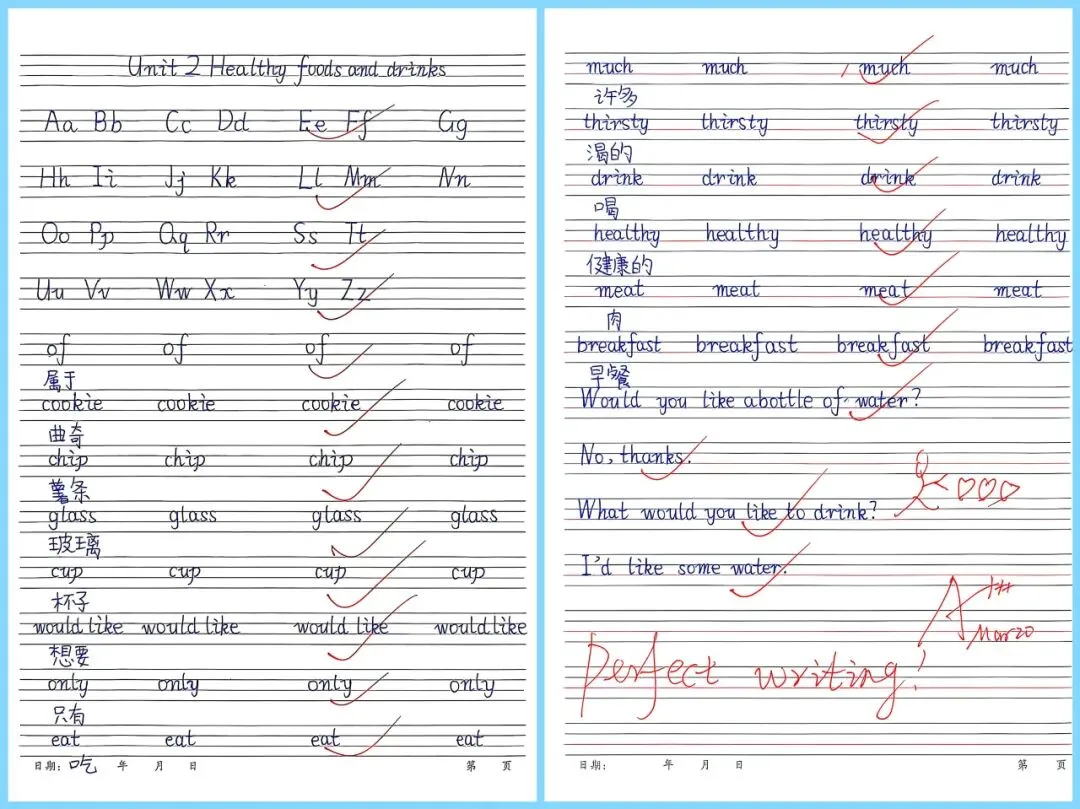 Unit 2 Healthy foods and drinks
Aa Bb Cc Dd Ee Ff Gg
Hh Ii Jj Kk Ll Mm Nn
Oo Pp Qq Rr Ss Tt
Uu Vv Ww Xx Yy Zz
of of of of
属于
cookie cookie cookie cookie
曲奇
chip chip chip chip
薯条
glass glass glass glass
玻璃
cup cup cup cup
杯子
would like would like would like would like
想要
only only only only
只有
eat eat eat eat
日期: 吃 年 月 日 第 页
much much much much
许多
thirsty thirsty thirsty thirsty
渴的
drink drink drink drink
喝
healthy healthy healthy healthy
健康的
meat meat meat meat
肉
breakfast breakfast breakfast breakfast
早餐
Would you like abottle of water?
No, thanks.
What would you like to drink?
I'd like some water.
A++
Mar 20
Perfect writing!
日期: 年 月 日 第 页